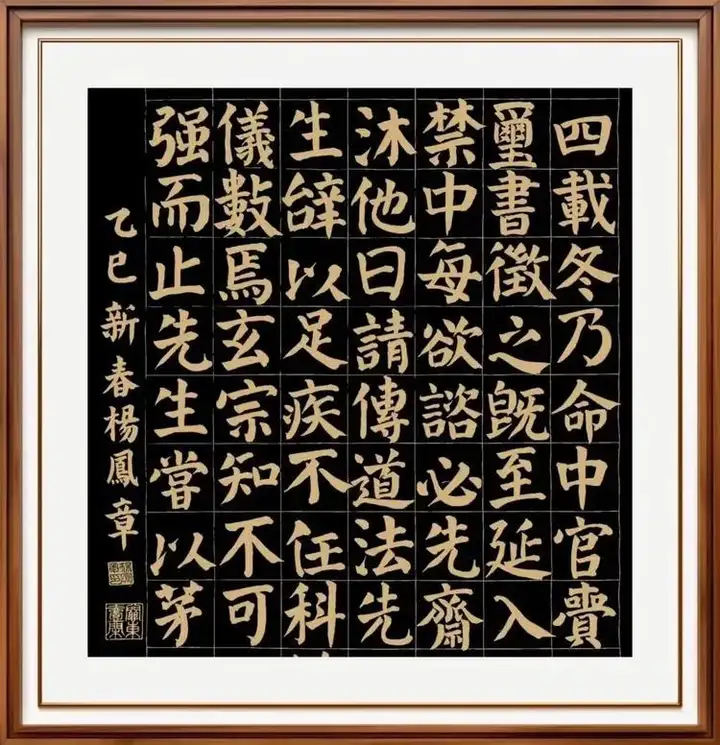 四載冬乃命中官賫
璽書徵之既至延入
禁中每欲諮必先齋
沐他日請傳道法先
生辝以足疾不任科
儀數焉玄宗知不可
强而止先生嘗以茅
乙巳新春楊鳳章